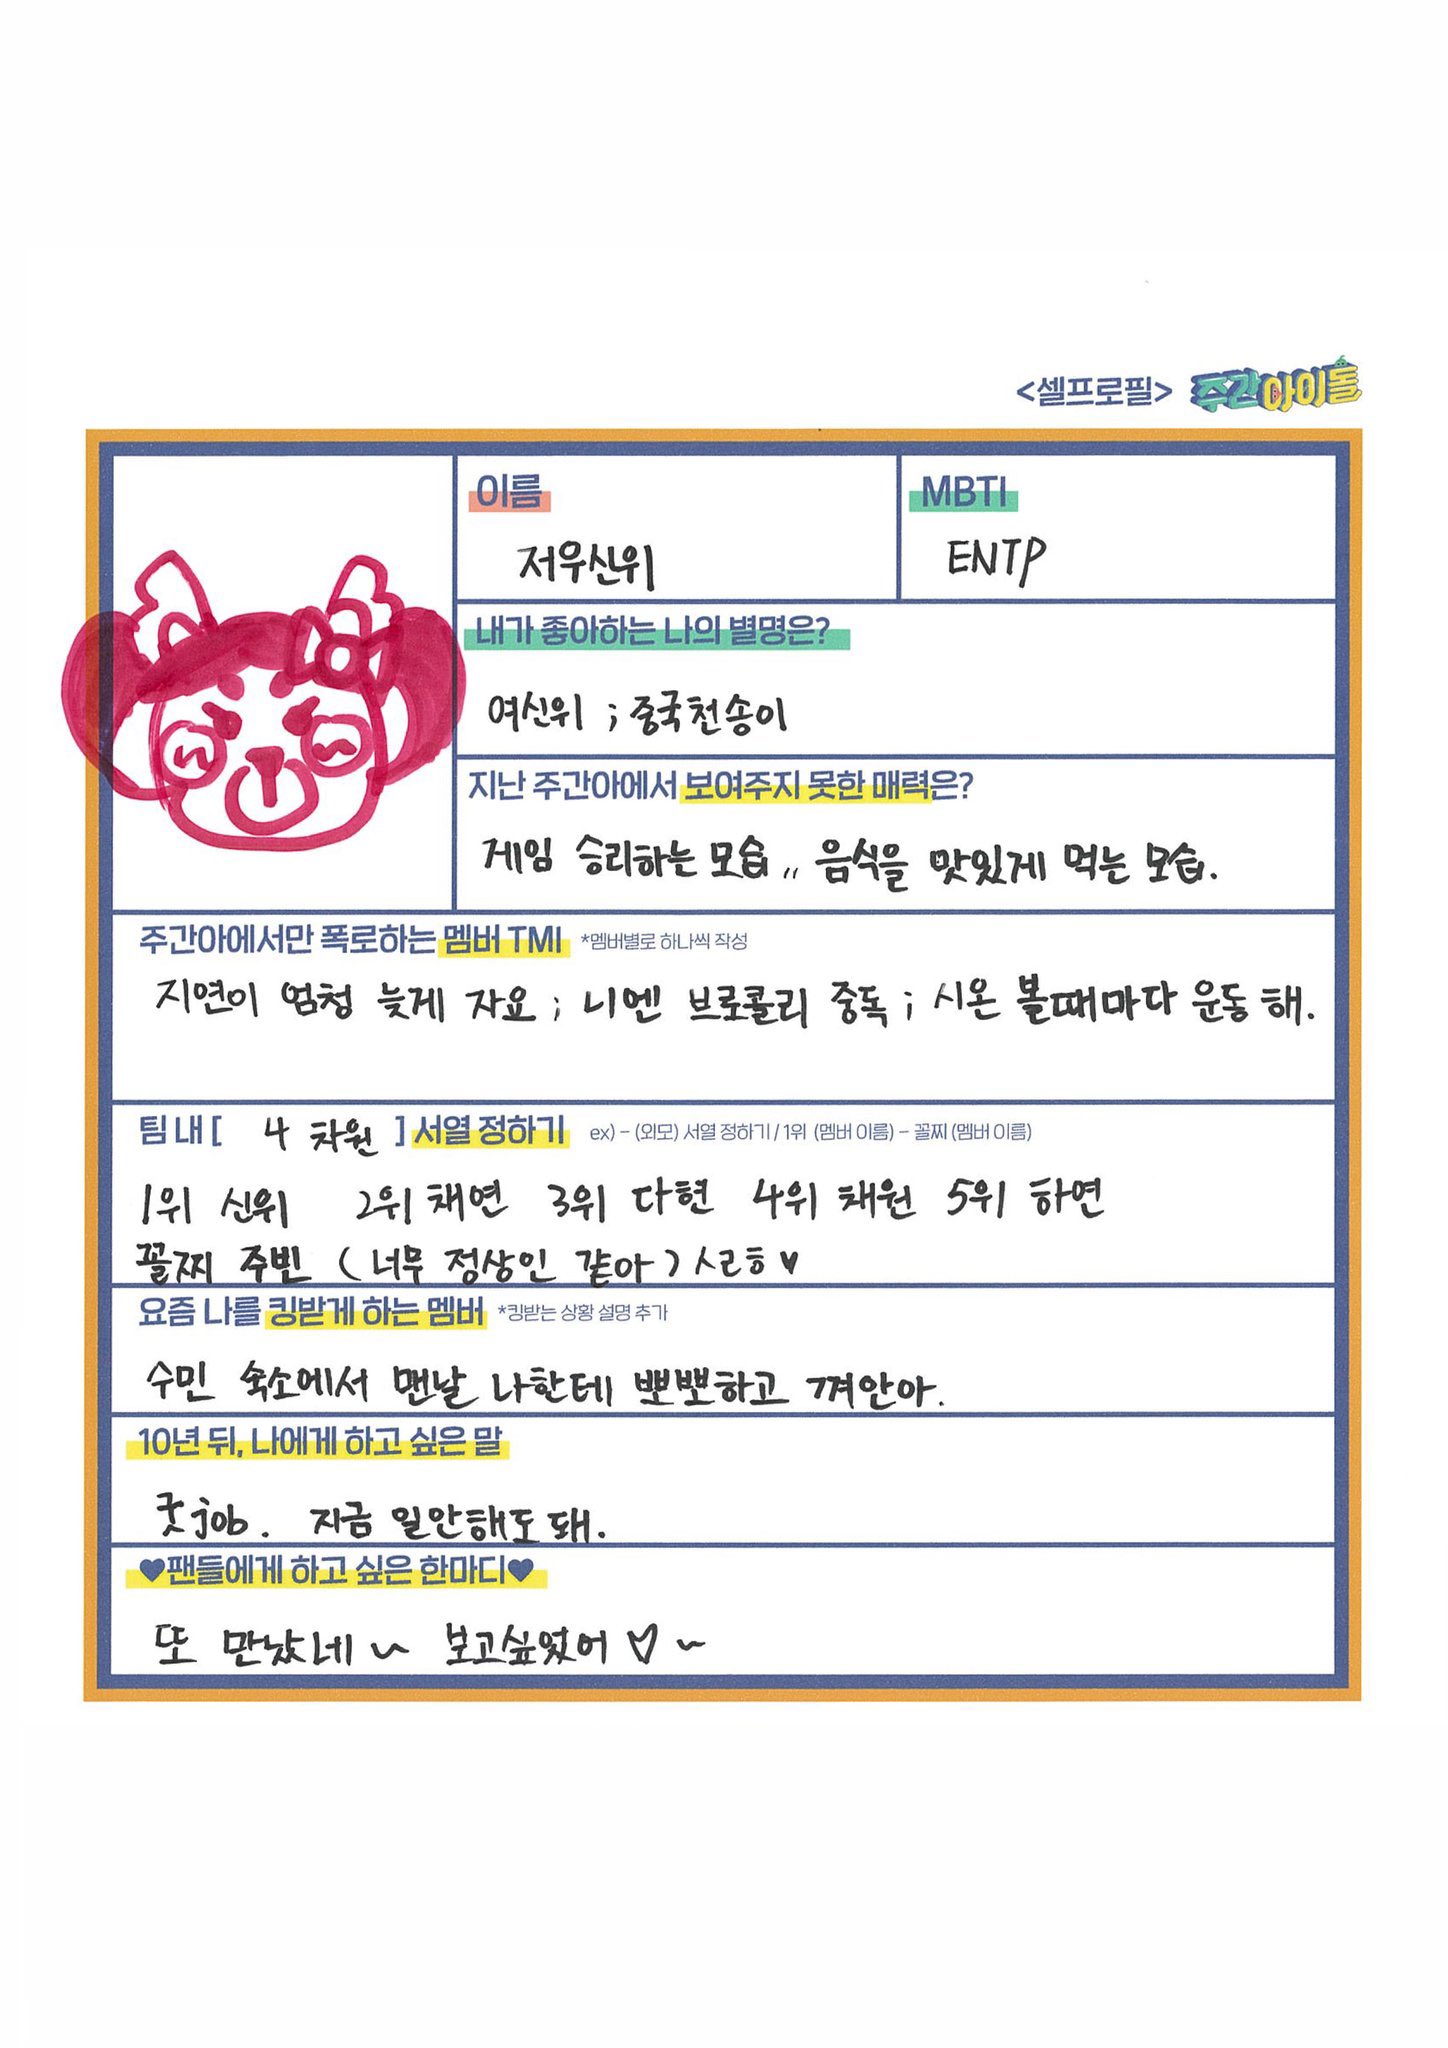 <셀프로필> 주간아이돌
이름
저우신위
MBTI
ENTP
내가 좋아하는 나의 별명은?
여신위 ; 중국천송이
지난 주간아에서 보여주지 못한 매력은?
게임 승리하는 모습,, 음식을 맛있게 먹는 모습.
주간아에서만 폭로하는 멤버 TMI *멤버별로 하나씩 작성
지연이 엄청 늦게 자요 ; 니엔 브로콜리 중독 ; 시온 볼때마다 운동 해.
팀 내 [ 4차원 ] 서열 정하기 ex) - (외모) 서열 정하기 / 1위 (멤버 이름) - 꼴찌 (멤버 이름)
1위 신위 2위 채연 3위 다현 4위 채원 5위 하연
꼴찌 주빈 (너무 정상인 같아) ㅅㄹㅎ♥
요즘 나를 킹받게 하는 멤버 *킹받는 상황 설명 추가
수민 숙소에서 맨날 나한테 뽀뽀하고 껴안아.
10년 뒤, 나에게 하고 싶은 말
굿job. 지금 일안해도 돼.
♥팬들에게 하고 싶은 한마디♥
또 만났네~ 보고싶었어♡~